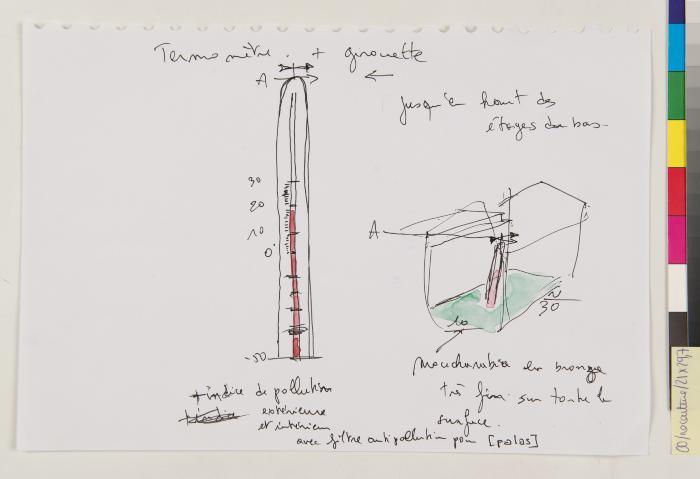 Termomètre. + girouette
A
jusqu'en haut des
étages du bas-
30
20
10
0°
-50
A
10
N
30
+ indice de pollution
extérieure
et intérieur
avec filtre antipollution pour [palas]
Moucharabia en bronze
très fin sur toute la
surface.
21x29,7